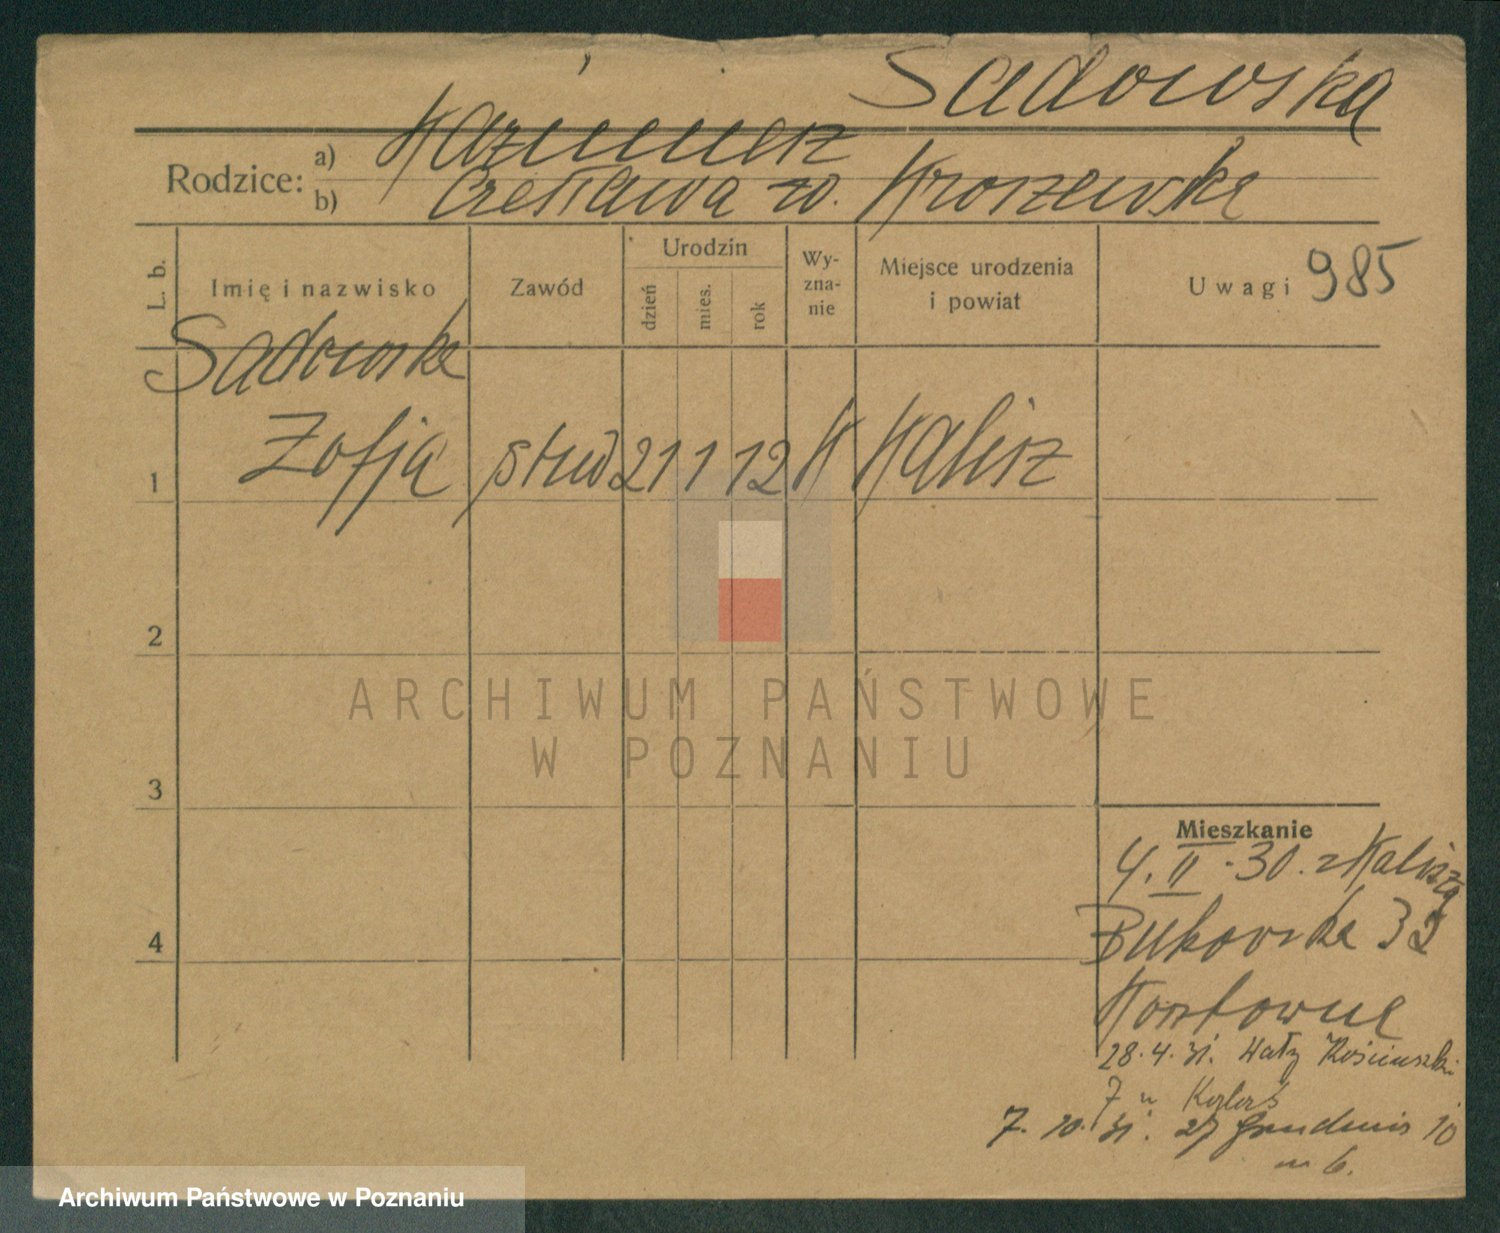 Sadowska
Rodzice: a) Kazimierz
b) Czesława zd. Kroszewska
L. b. Imię i nazwisko Zawód Urodzin dzień mies. rok Wyznanie Miejsce urodzenia i powiat Uwagi 985
Sadowska
1 Zofja stud 21 1 12 K Kalisz
2
ARCHIWUM PAŃSTWOWE
W POZNANIU
3
Mieszkanie
4. II. 30. z Kalisza
4
Bukowska 32
28.4.31. Wały Kościuszki
7 u
7. 10. 31. 27 Grudnia 10
m 6.
Archiwum Państwowe w Poznaniu